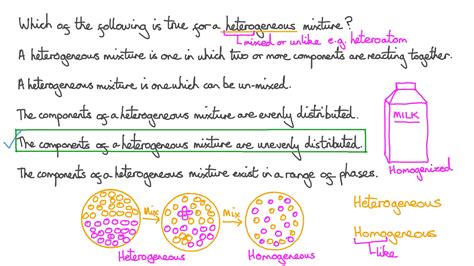 Which of the following is true for a heterogeneous mixture?
mixed or unlike e.g. heteroatom
A heterogeneous mixture is one in which two or more components are reacting together.
A heterogeneous mixture is one which can be un-mixed.
The components of a heterogeneous mixture are evenly distributed.
The components of a heterogeneous mixture are unevenly distributed.
The components of a heterogeneous mixture exist in a range of phases.
MILK
Homogenized
Mix
Mix
Heterogeneous
Homogeneous
Heterogeneous
Homogeneous
like